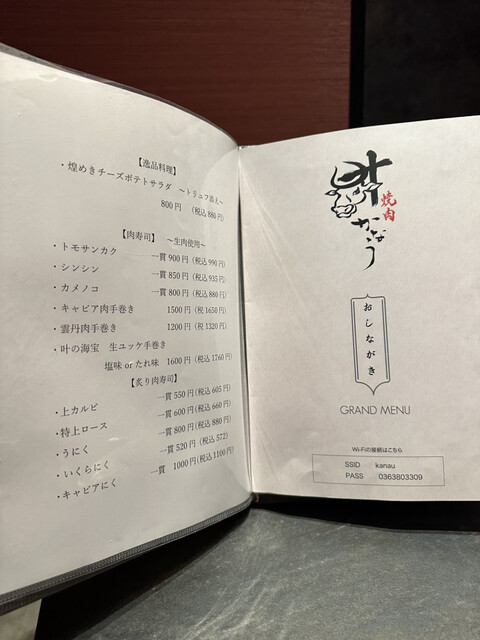 【逸品料理】
・煌めきチーズポテトサラダ ～トリュフ添え～
800円 （税込880円）
【肉寿司】 ～生肉使用～
・トモサンカク 一貫900円(税込990円)
・シンシン 一貫850円(税込935円)
・カメノコ 一貫800円(税込880円)
・キャビア肉手巻き 1500円(税1650円)
・雲丹肉手巻き 1200円(税1320円)
・叶の海宝 生ユッケ手巻き
塩味orたれ味 1600円(税込1760円)
【炙り肉寿司】
・上カルビ 一貫550円(税込605円)
・特上ロース 一貫600円(税込660円)
・うにく 一貫800円(税込880円)
・いくらにく 一貫520円(税込572)
・キャビアにく 一貫 1000円(税込1100円)
叶
焼肉
かなう
おしながき
GRAND MENU
Wi-Fiの接続はこちら
SSID kanau
PASS 0363803309